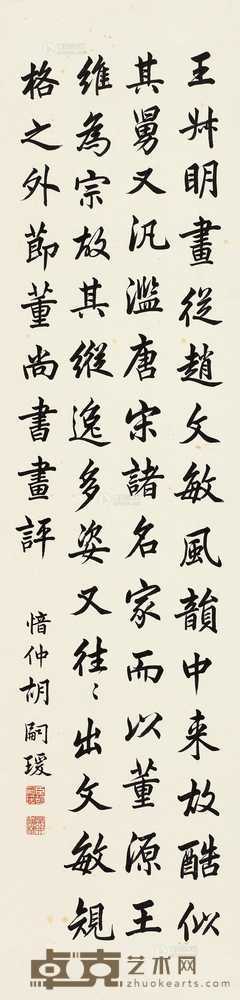 王叔明畫從趙文敏風韻中来故酷似
其舅又汎濫唐宋諸名家而以董源王
維為宗故其縱逸多姿又往〻出文敏規
格之外節董尚書畫評
愔仲胡嗣瑗
卓克艺术网
www.zhuokearts.com